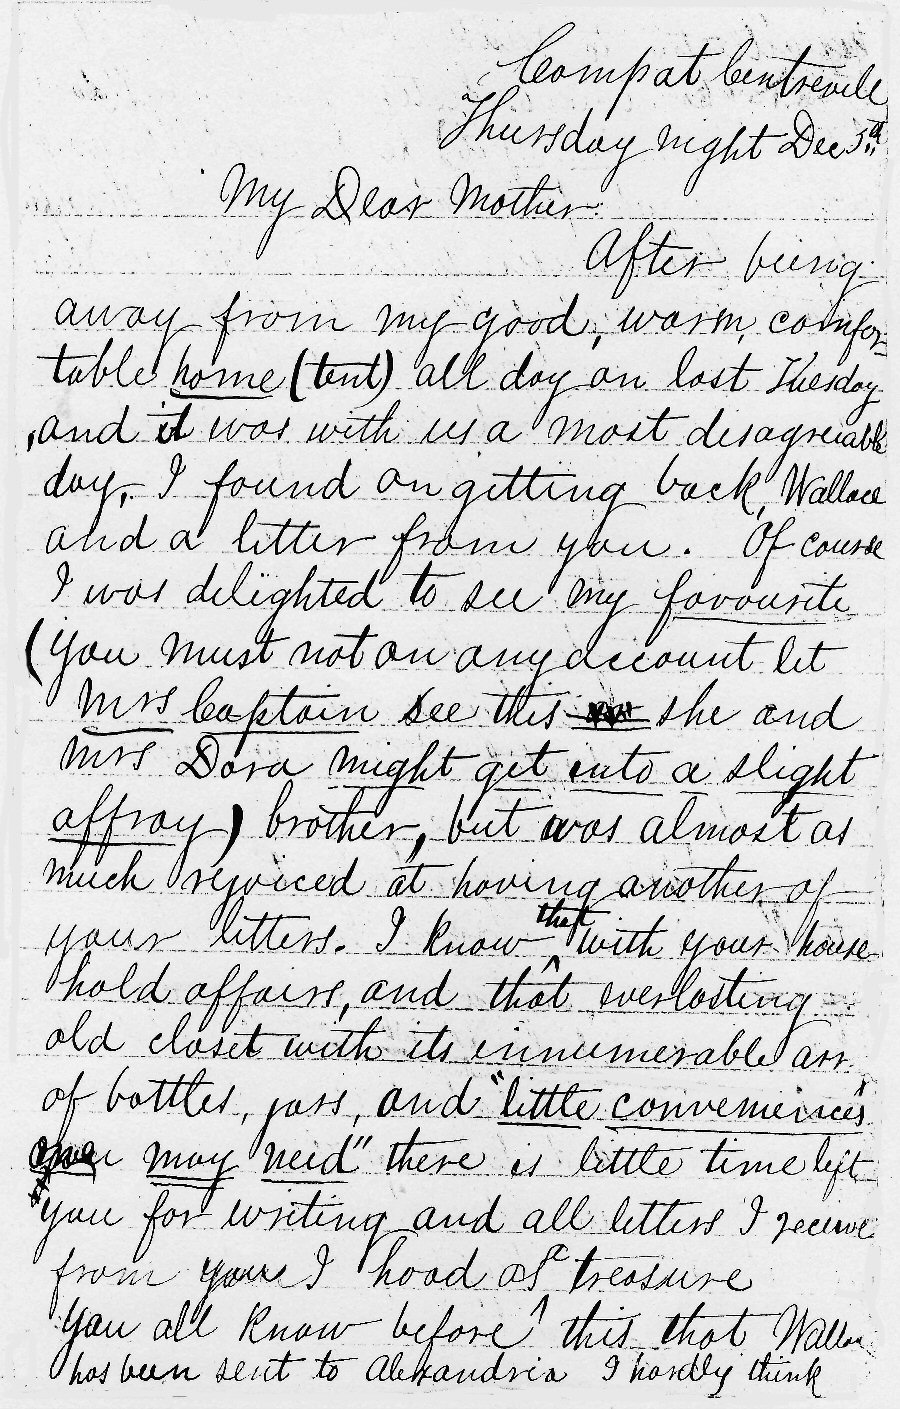 Comp at Centrevill
Thursday night Dec 5th
My Dear Mother.
After being
away from my good, warm, comfor-
table home (tent) all day on last Tuesday
and it was with us a most disagreeable
day, I found on getting back, Wallace
and a letter from you. Of course
I was delighted to see my favourite
(you must not on any account let
Mrs Captain see this she and
Mrs Dora might get into a slight
affray) brother, but was almost as
much rejoiced at having another of
your letters. I know that with your house
hold affairs, and that everlasting
old closet with its innumerable arr.
of bottles, jars, and "little conveniences
may need" there is little time left
you for writing and all letters I receive
from you I hoad as a treasure
You all know before this that Wallace
has been sent to Alexandria I hardly think